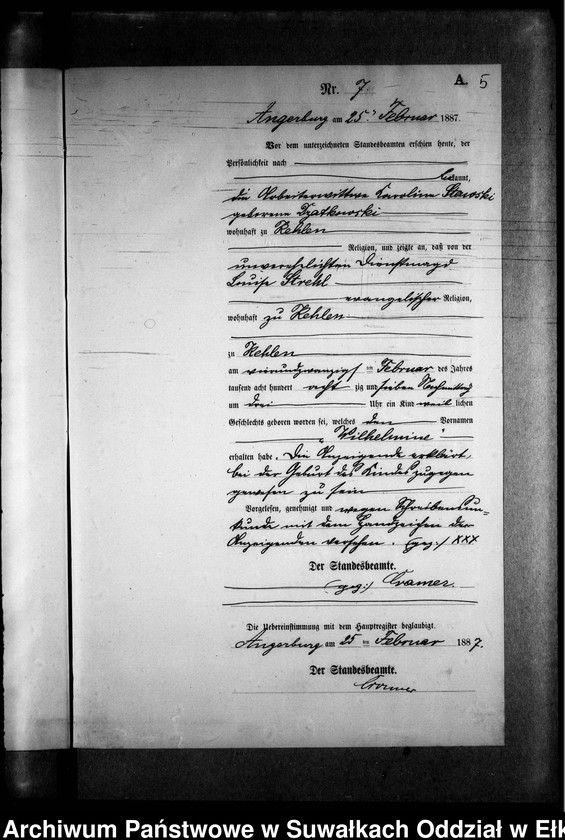 A. 5
Nr. 7
Angerburg am 25. Februar 1887.
Vor dem unterzeichneten Standesbeamten erschien heute, der
Persönlichkeit nach
bekannt,
die Arbeiterwittwe Karoline Slawski
geborene Dzatkowski
wohnhaft zu Kehlen
Religion, und zeigte an, daß von der
unverehelichten Dienstmagd
Louise Strehl
evangelischer Religion,
wohnhaft zu Kehlen
zu Kehlen
am vierundzwanzigs ten Februar des Jahres
tausend acht hundert acht zig und sieben Nachmittag
um drei Uhr ein Kind weib lichen
Geschlechts geboren worden sei, welches den Vornamen
„Wilhelmine"
erhalten habe. Die Anzeigende erklärt
bei der Geburt des Kindes zugegen
gewesen zu sein
Vorgelesen, genehmigt und wegen Schreibensun=
kunde mit dem Handzeichen der
Anzeigenden versehen. (gez:) XXX
Der Standesbeamte.
(gez:) Cramer.
Die Uebereinstimmung mit dem Hauptregister beglaubigt.
Angerburg am 25 ten Februar 1887.
Der Standesbeamte.
Cramer
Archiwum Państwowe w Suwałkach Oddział w Ełk